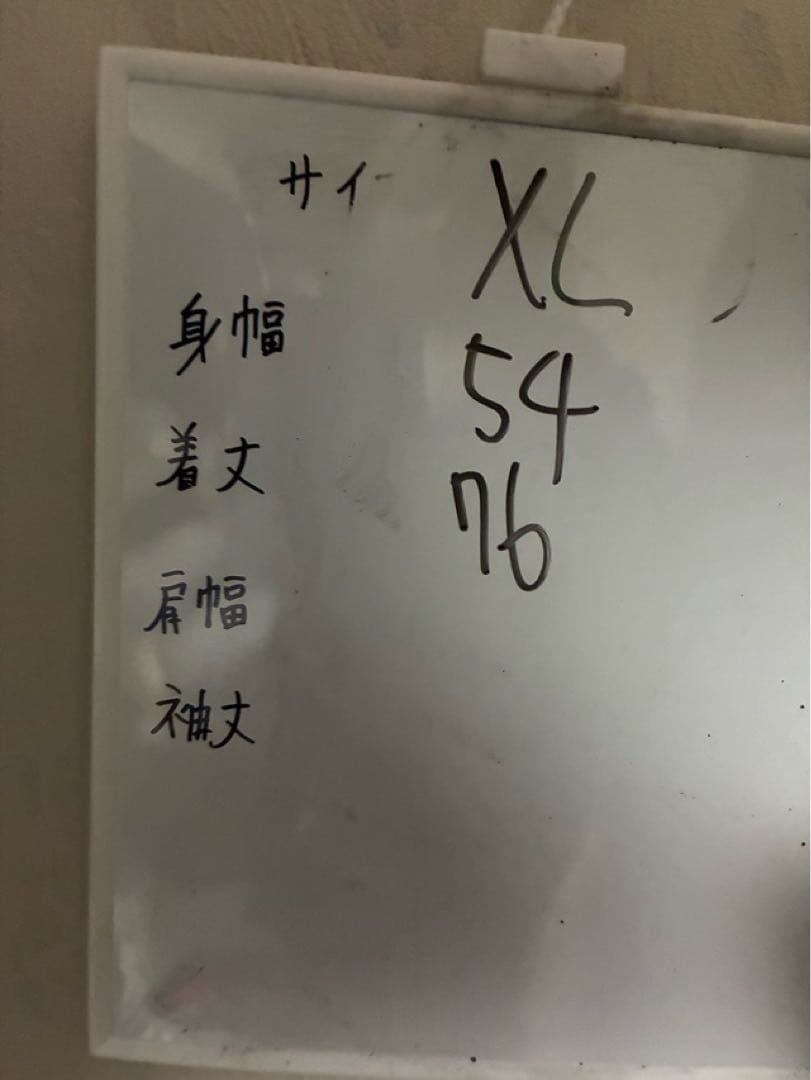 サイ XL
身幅 54
着丈 76
肩幅
袖丈